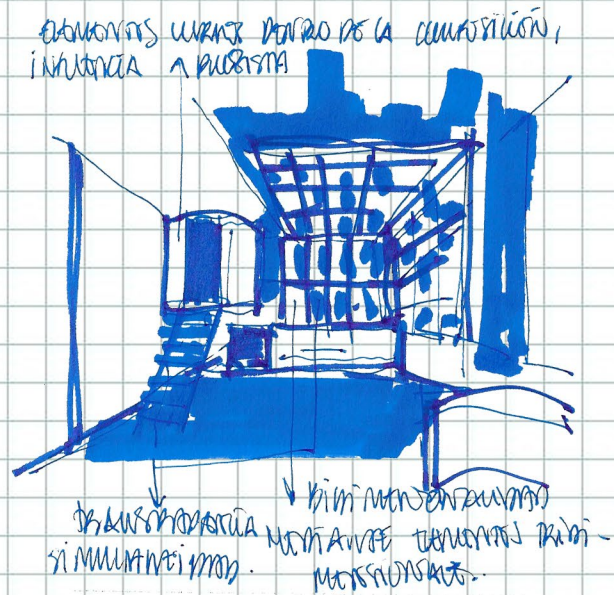 ELEMENTOS CURVOS DENTRO DE LA COMPOSICIÓN,
INFLUENCIA PURISTA
TRANSPARENCIA
SIMULTANEIDAD.
BIDIMENSIONALIDAD
MEDIANTE ELEMENTOS TRIDI-
MENSIONALES.